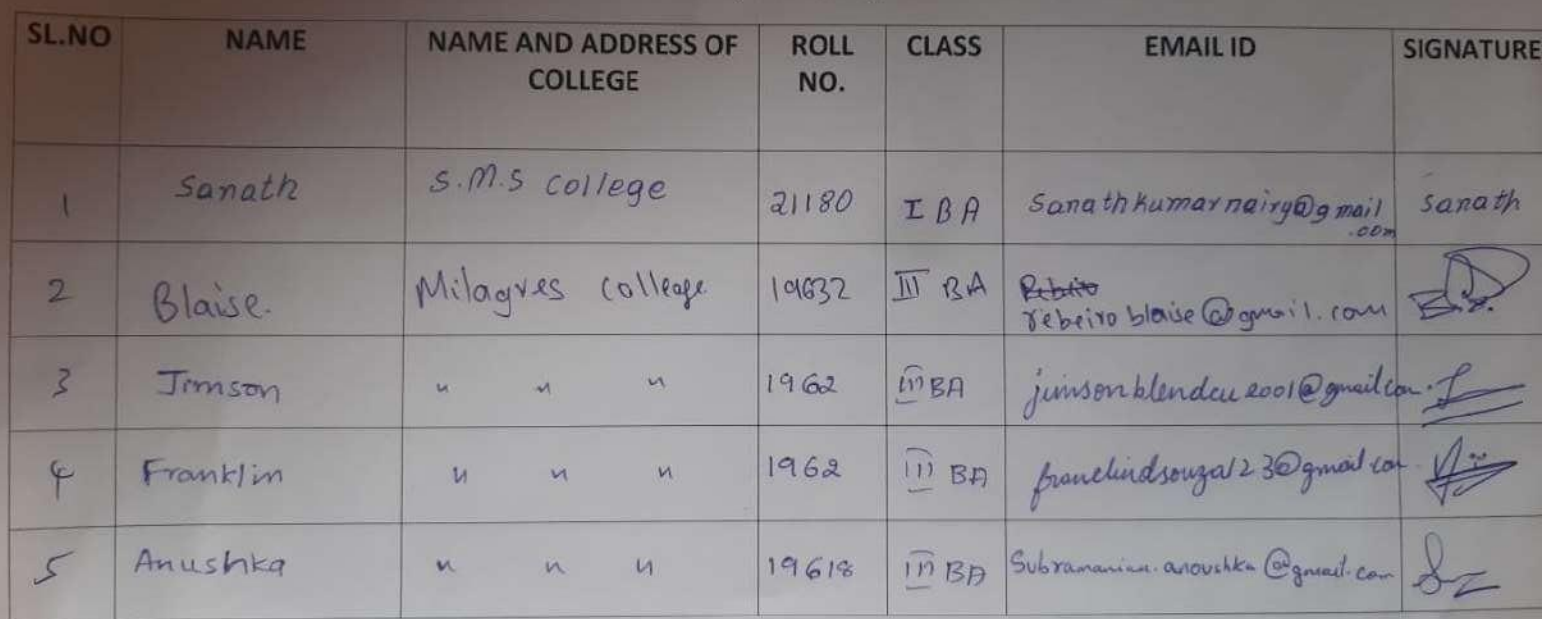 SL.NO NAME NAME AND ADDRESS OF COLLEGE ROLL NO. CLASS EMAIL ID SIGNATURE
1 Sanath S.M.S college 21180 I BA Sanathkumarnairy@gmail.com Sanath
2 Blaise. Milagres college 19632 III BA rebeiroblaise@gmail.com
3 Jimson " " " 1962 III BA
4 Franklin " " " 1962 III BA
5 Anushka " " " 19618 III BA Subramanian.anoushka@gmail.com